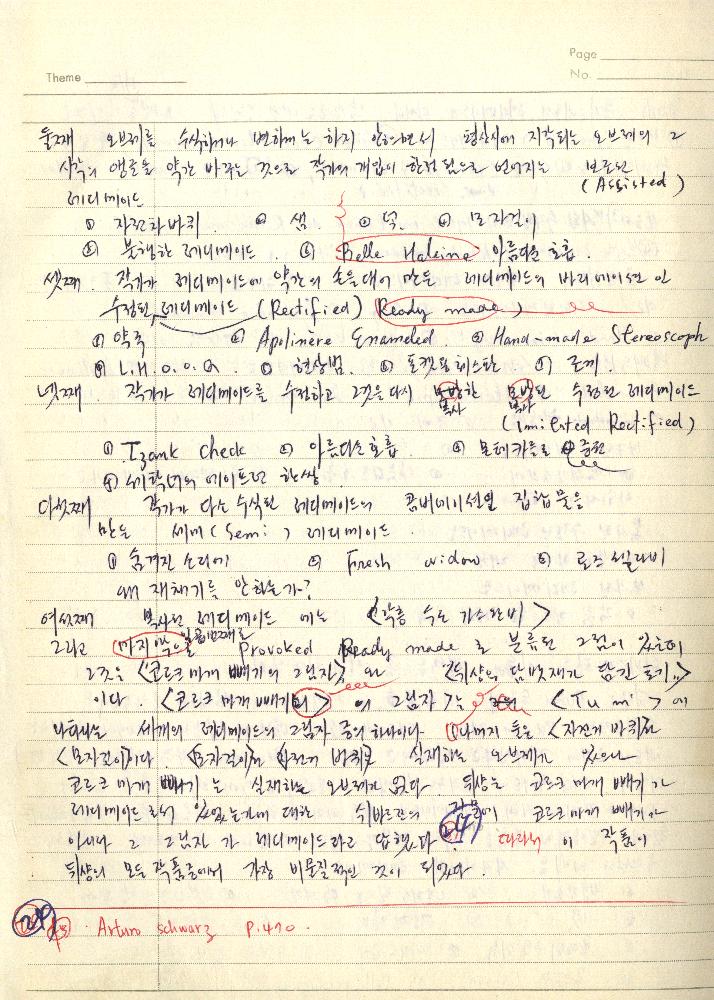 Page
Theme
No.
둘째 오브제를 수식하거나 변하게는 하지 않으면서 형상시에 지각되는 오브제의 그
시각의 앵글을 약간 바꾸는 것으로 작가의 개입이 한정됨으로 얻어지는 보조된
(Assisted)
레디메이드
① 자전차바퀴. ② 샘 ③ 덫. ④ 모자걸이
⑤ 불행한 레디메이드. ⑥ Belle Haleine 아름다운 호흡.
셋째. 작가가 레디메이드에 약간의 손을 대어 만든 레디메이드의 바리에이션인
수정된 레디메이드 (Rectified) (Ready made)
① 약국 ② Apolinère Enameled. ③ Hand-made Stereoscoph
④ L.H.O.O.Q. ⑤ 현상범. ⑥ ⑦
넷째 작가가 레디메이드를 수정하고 그것을 다시 모방한 모방된 수정된 레디메이드
복사 복사
(Imitated Rectified)
① Tzank check ② 아름다운 호흡. ③ 몬테카를로 증권
④ 세학녀의 에이프런 한쌍
다섯째 작가가 다소 수식된 레디메이드의 콤비네이션일 집합물을
만든 세미(Semi) 레디메이드.
① 숨겨진 소리에 ② Fresh widow ③ 로즈 셀라비
왜 재채기를 안하는가?
여섯째 복사된 레디메이드 에는 <각층 수도 가스완비>
그리고 마지막으로 일곱번째로 Provoked Ready made로 분류된 그림이 있는데
그것은 <코르크 마개 빼기의 그림자>와 <뒤샹의 담뱃재가 담긴 토기>
이다. <코르크 마개 빼기의> 의 그림자>는 <Tu m'>에
나타나는 세개의 레디메이드의 그림자 중의 하나이다 나머지 둘은 <자전거 바퀴>와
<모자걸이>이다. <모자걸이>와 <자전거 바퀴>는 실재하는 오브제가 있으나
코르크 마개 빼기는 실재하는 오브제가 없다 뒤샹은 코르크 마개 빼기가
레디메이드로서 있었는가에 대한 쉬바르쯔의 질문에 코르크 마개 빼기가
아니라 그 그림자가 레디메이드라고 답했다. 따라서 이 작품이
뒤샹의 모든 작품중에서 가장 비물질적인 것이 되었다.
Arturo schwarz P.470.